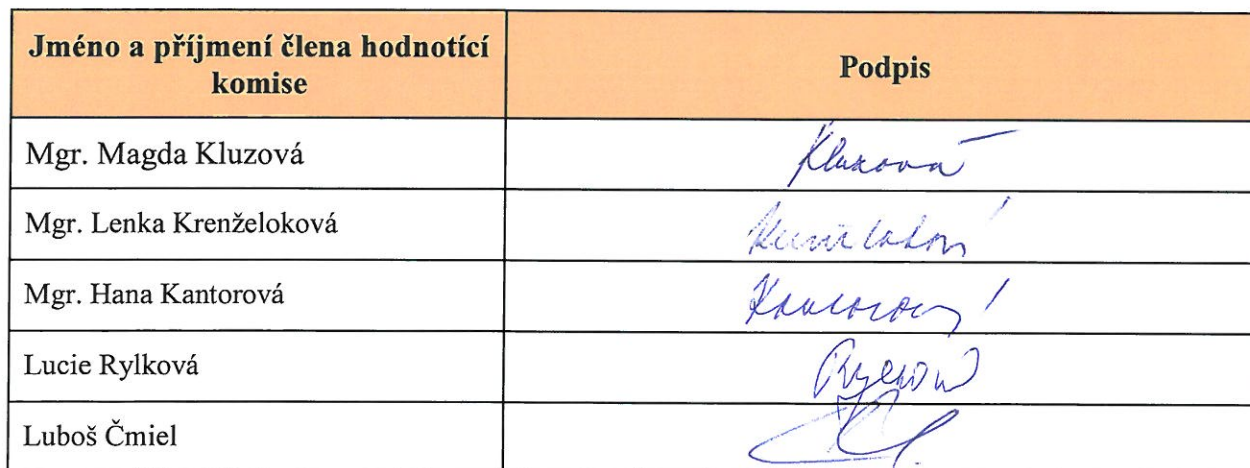 Jméno a příjmení člena hodnotící
komise
Podpis
Mgr. Magda Kluzová
Kluzová
Mgr. Lenka Krenželoková
Mgr. Hana Kantorová
Kantorová
Lucie Rylková
Luboš Čmiel